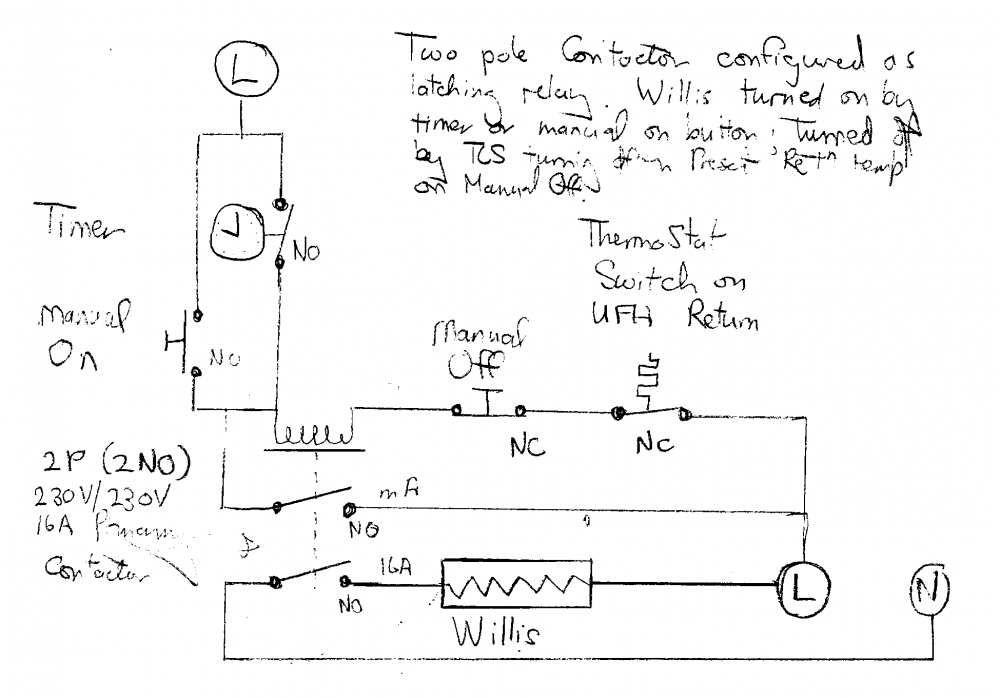 L
Two pole Contactor configured as
latching relay. Willis turned on by
timer or manual on button. Turned off
by TCS turning Preset 'Retn temp'
on Manual Off.
Timer
NO
ThermoStat
Switch on
UFH Return
Manual
On
NO
Manual
Off
NC
NC
2P (2NO)
230V/230V
16A
Contactor
NO
16A
NO
L
N
Willis